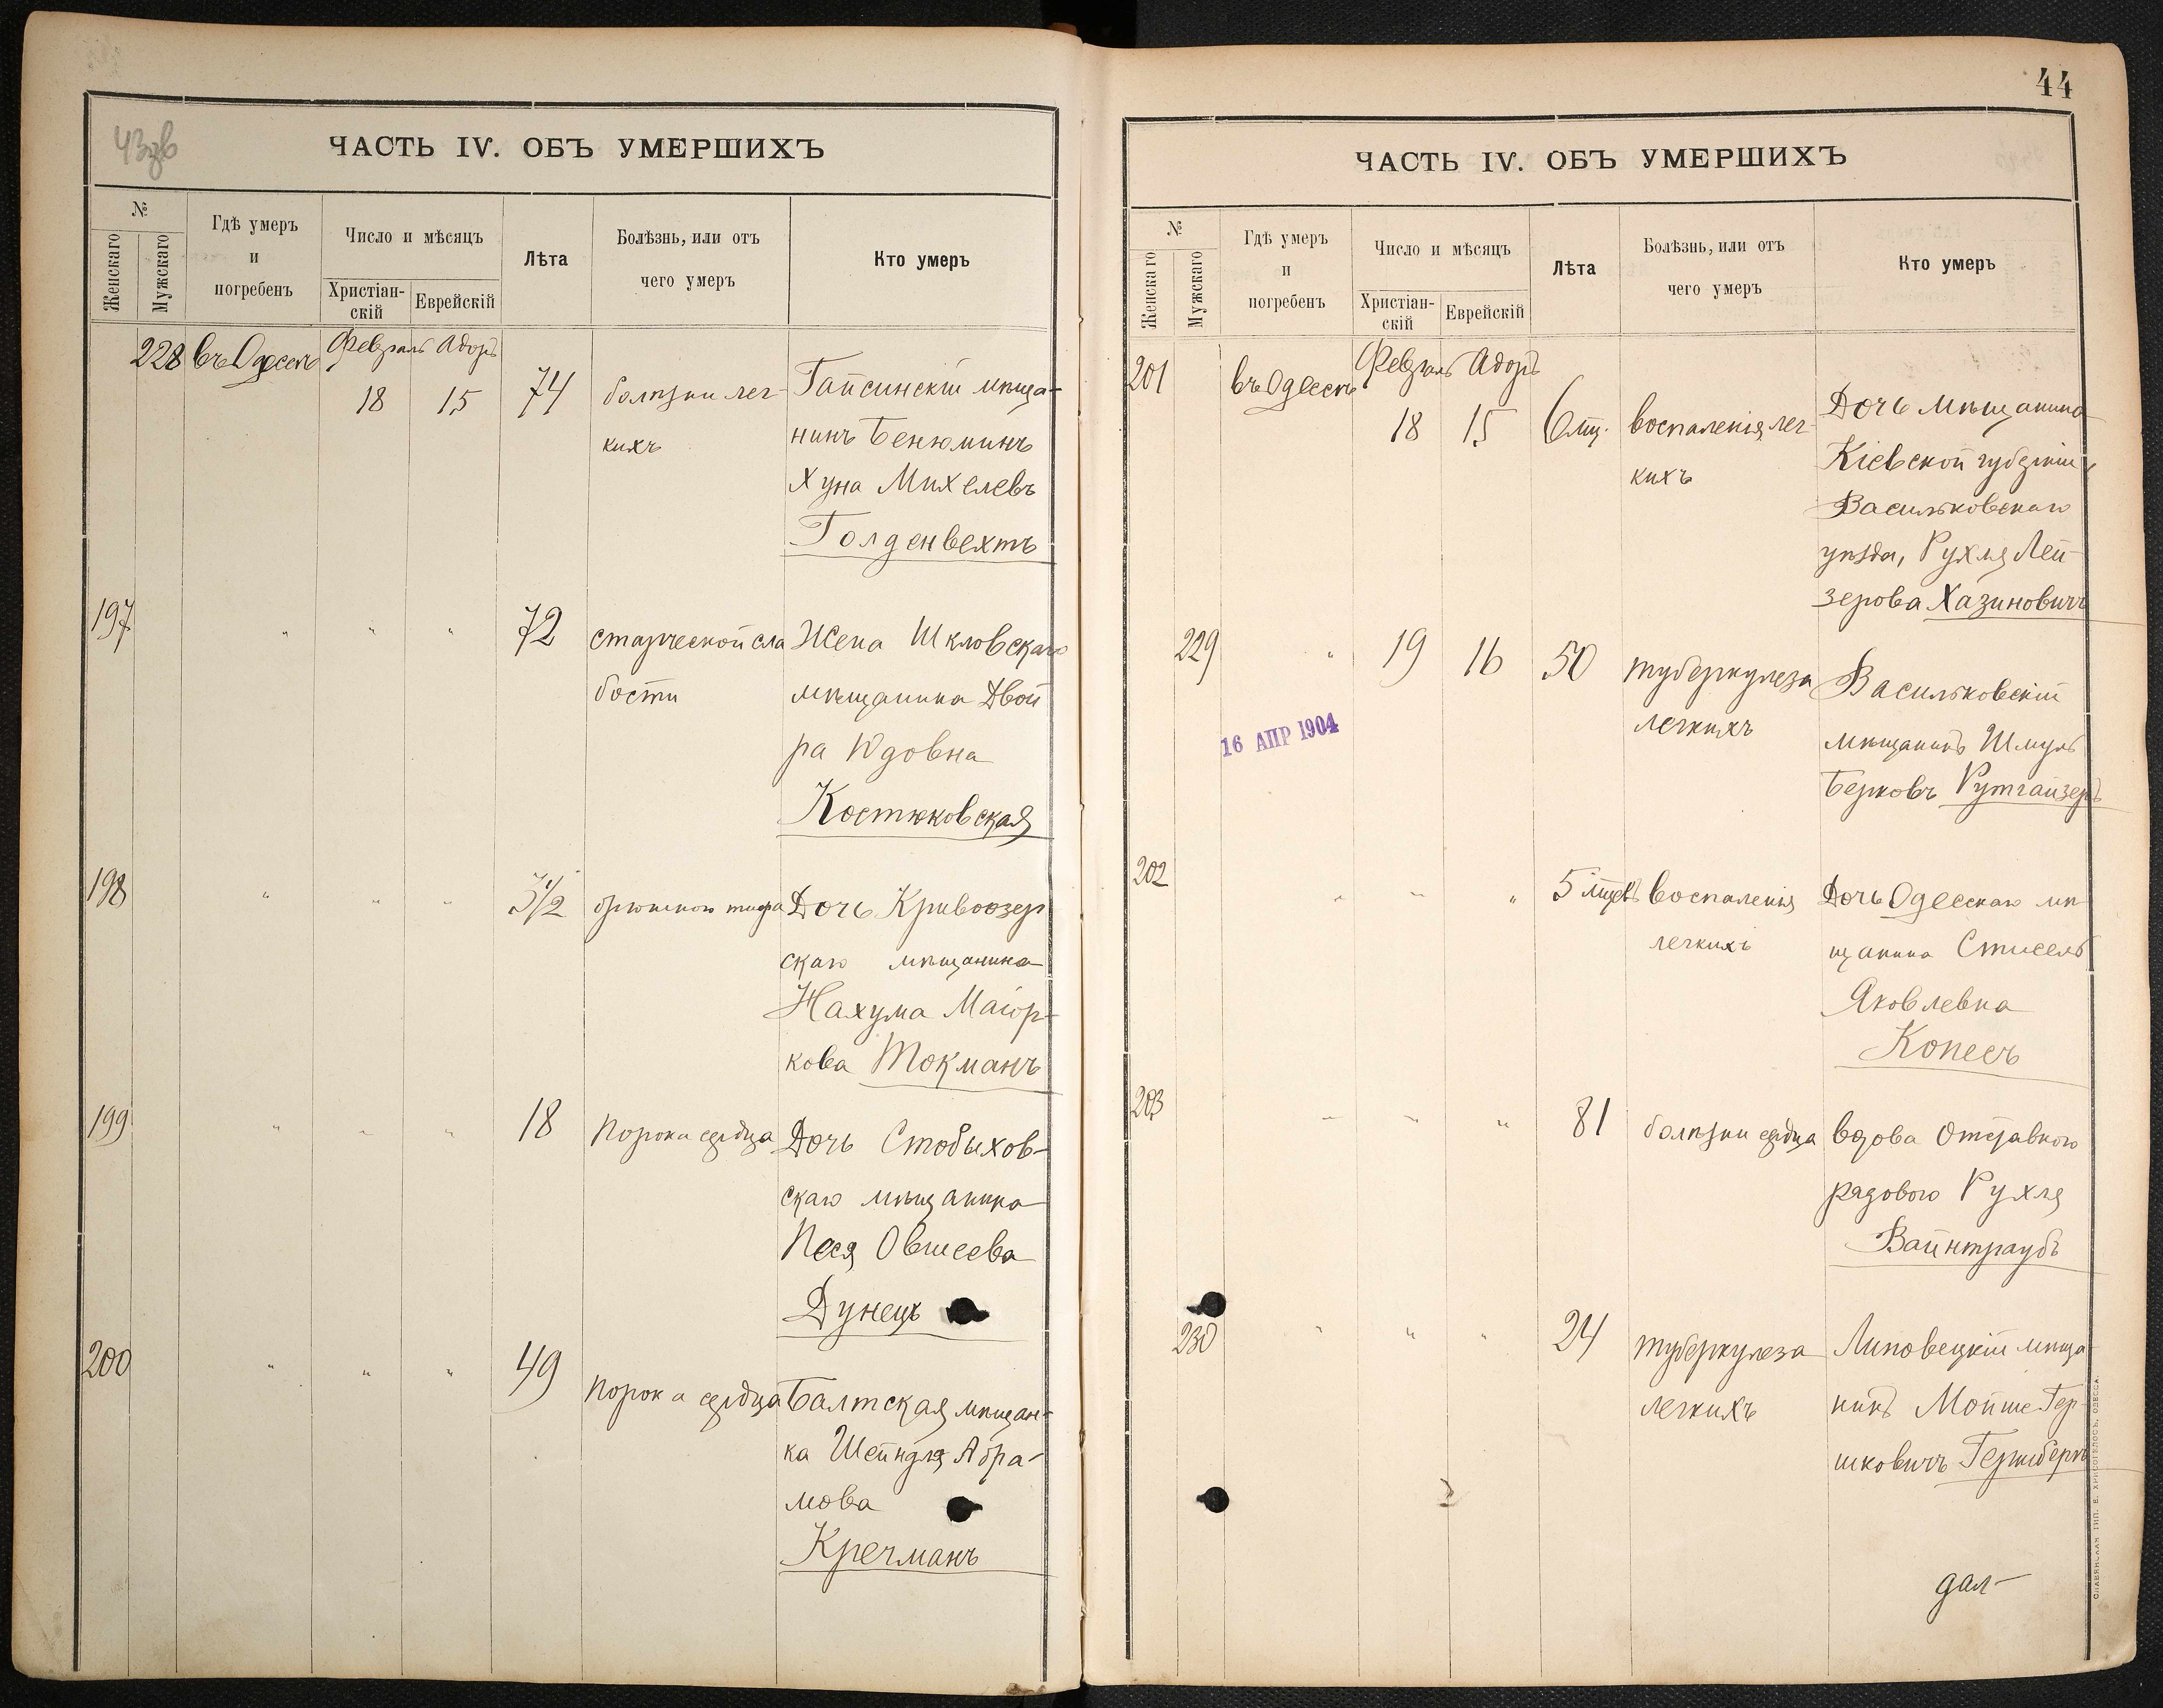 43зв
ЧАСТЬ IV. ОБЪ УМЕРШИХЪ
№
Женскаго
Мужскаго
Гдѣ умеръ
и
погребенъ
Число и мѣсяцъ
Христіан-
скій
Еврейскій
Лѣта
Болѣзнь, или отъ
чего умеръ
Кто умеръ
228 въ Одессѣ Февраль Адоръ
18 15 74 болѣзни лег-
кихъ
Гайсинскій мѣща-
нинъ Бенюминъ
Хуна Михелевъ
Голденвехтъ
197 " " " 72 старческой сла
бости
Жена Шкловскаго
мѣщанина Двой
ра Юдовна
Костюковская
198 " " " 3 1/2 брюшного тифа
Дочь Кривоозер
скаго мѣщанина
Нахума Маіор-
кова Токманъ
199 " " " 18 порока сердца
Дочь Стобыхов-
скаго мѣщанина
Песя Овшеева
Дунецъ
200 " " " 49 порока сердца
Балтская мѣщан-
ка Шейндля Абра-
мова
Кречманъ
44
ЧАСТЬ IV. ОБЪ УМЕРШИХЪ
№
Женскаго
Мужскаго
Гдѣ умеръ
и
погребенъ
Число и мѣсяцъ
Христіан-
скій
Еврейскій
Лѣта
Болѣзнь, или отъ
чего умеръ
Кто умеръ
201 въ Одессѣ Февраль Адоръ
18 15 6 мц. воспаленія лег-
кихъ
Дочь мѣщанина
Кіевской губерніи
Васильковскаго
уѣзда, Рухля Лей-
зерова Хазиновичъ
229 " 19 16 50 туберкулеза
легкихъ
Васильковскій
мѣщанинъ Шмуль
Берковъ Рутгайзеръ
16 АПР 1904
202 " " " 5 мцевъ воспаленія
легкихъ
Дочь Одесскаго мѣ-
щанина Стисель
Яковлевна
Копесъ
203 " " " 81 болѣзни сердца
вдова отставного
рядового Рухля
Вайнтраубъ
230 " " " 24 туберкулеза
легкихъ
Липовецкій мѣща-
нинъ Мойше Гер-
шковичъ Гершбергъ
дал-
СЛАВЯНСКАЯ ТИП. Е. ХРИСОГЕЛОСЪ, ОДЕССА.